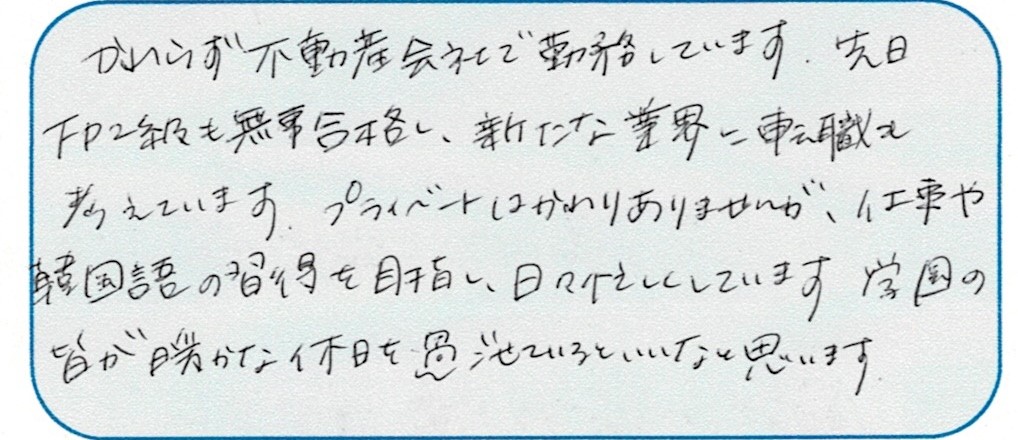 かわらず不動産会社で勤務しています。先日
FP2級も無事合格し、新たな業界に転職も
考えています。プライベートはかわりありませんが、仕事や
韓国語の習得を目指し、日々忙しくしています 学園の
皆が暖かな休日を過ごせているといいなと思います。